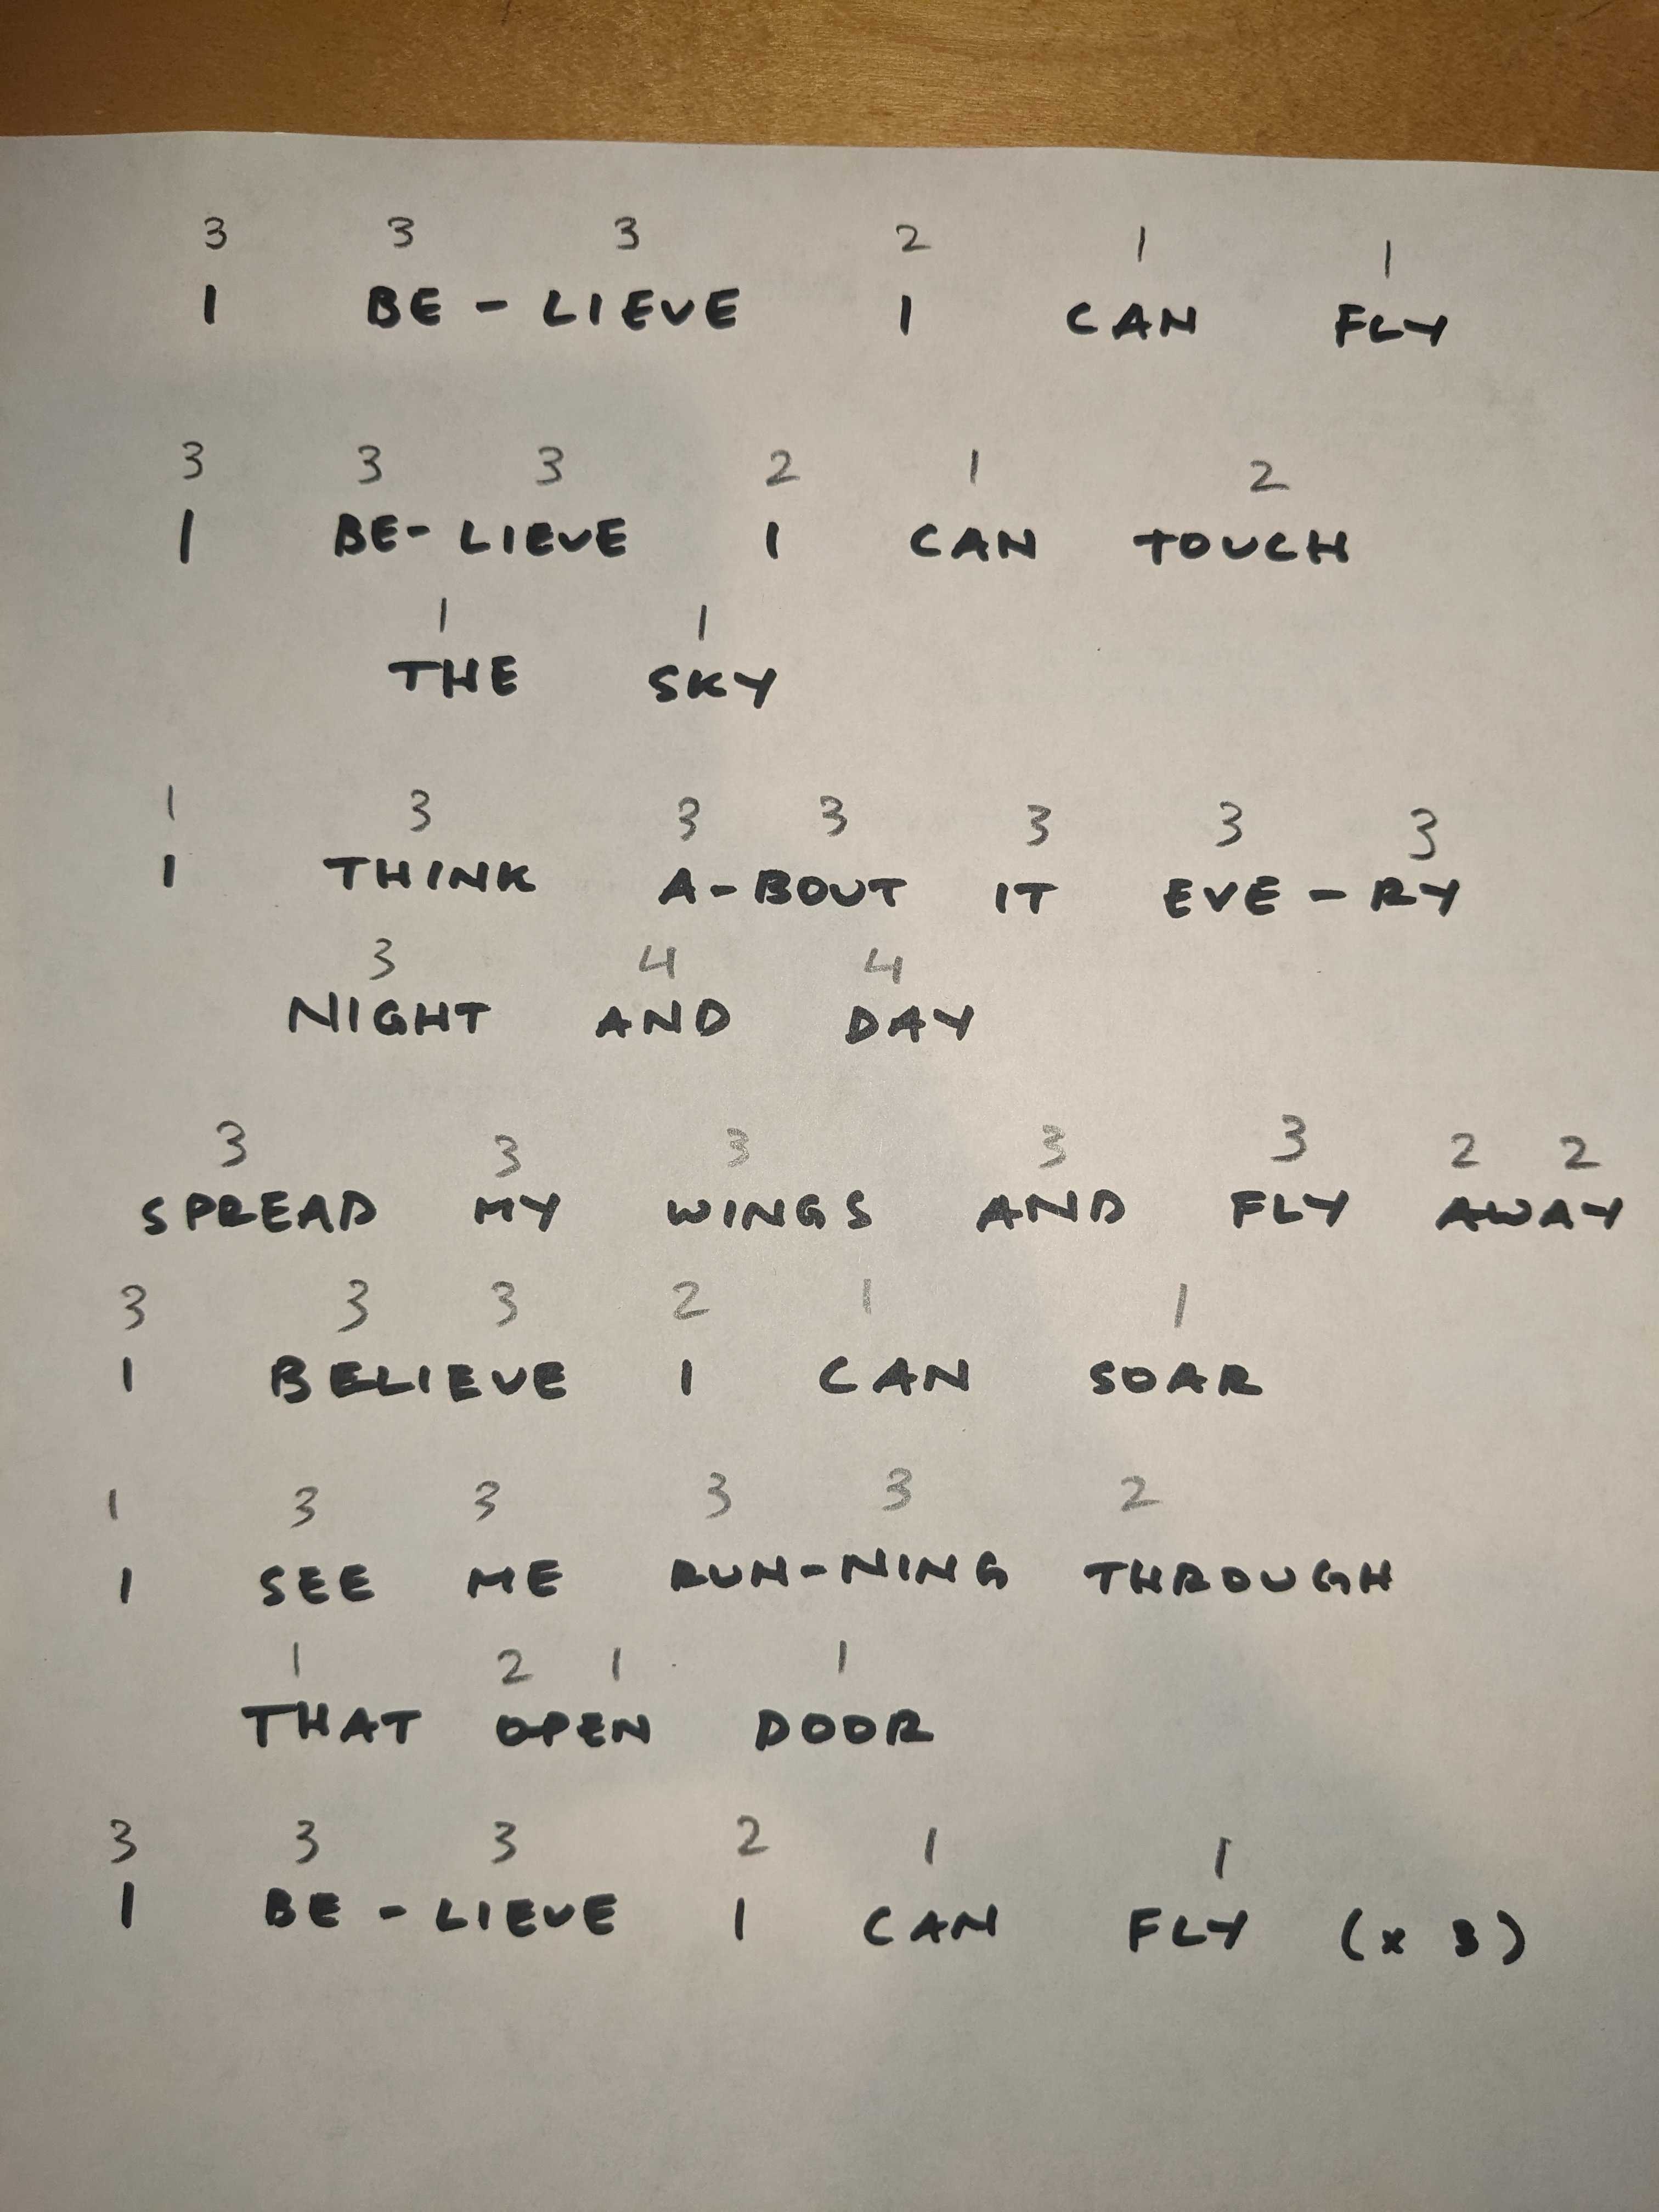 3 3 3 2 1 1
I BE - LIEVE I CAN FLY
3 3 3 2 1 2
I BE- LIEVE I CAN TOUCH
1 1
THE SKY
1 3 3 3 3 3 3
I THINK A-BOUT IT EVE - RY
3 4 4
NIGHT AND DAY
3 3 3 3 3 2 2
SPREAD MY WINGS AND FLY AWAY
3 3 3 2 1 1
I BELIEVE I CAN SOAR
1 3 3 3 3 2
I SEE ME RUN-NING THROUGH
1 2 1 1
THAT OPEN DOOR
3 3 3 2 1 1
I BE - LIEVE I CAN FLY (x 3)